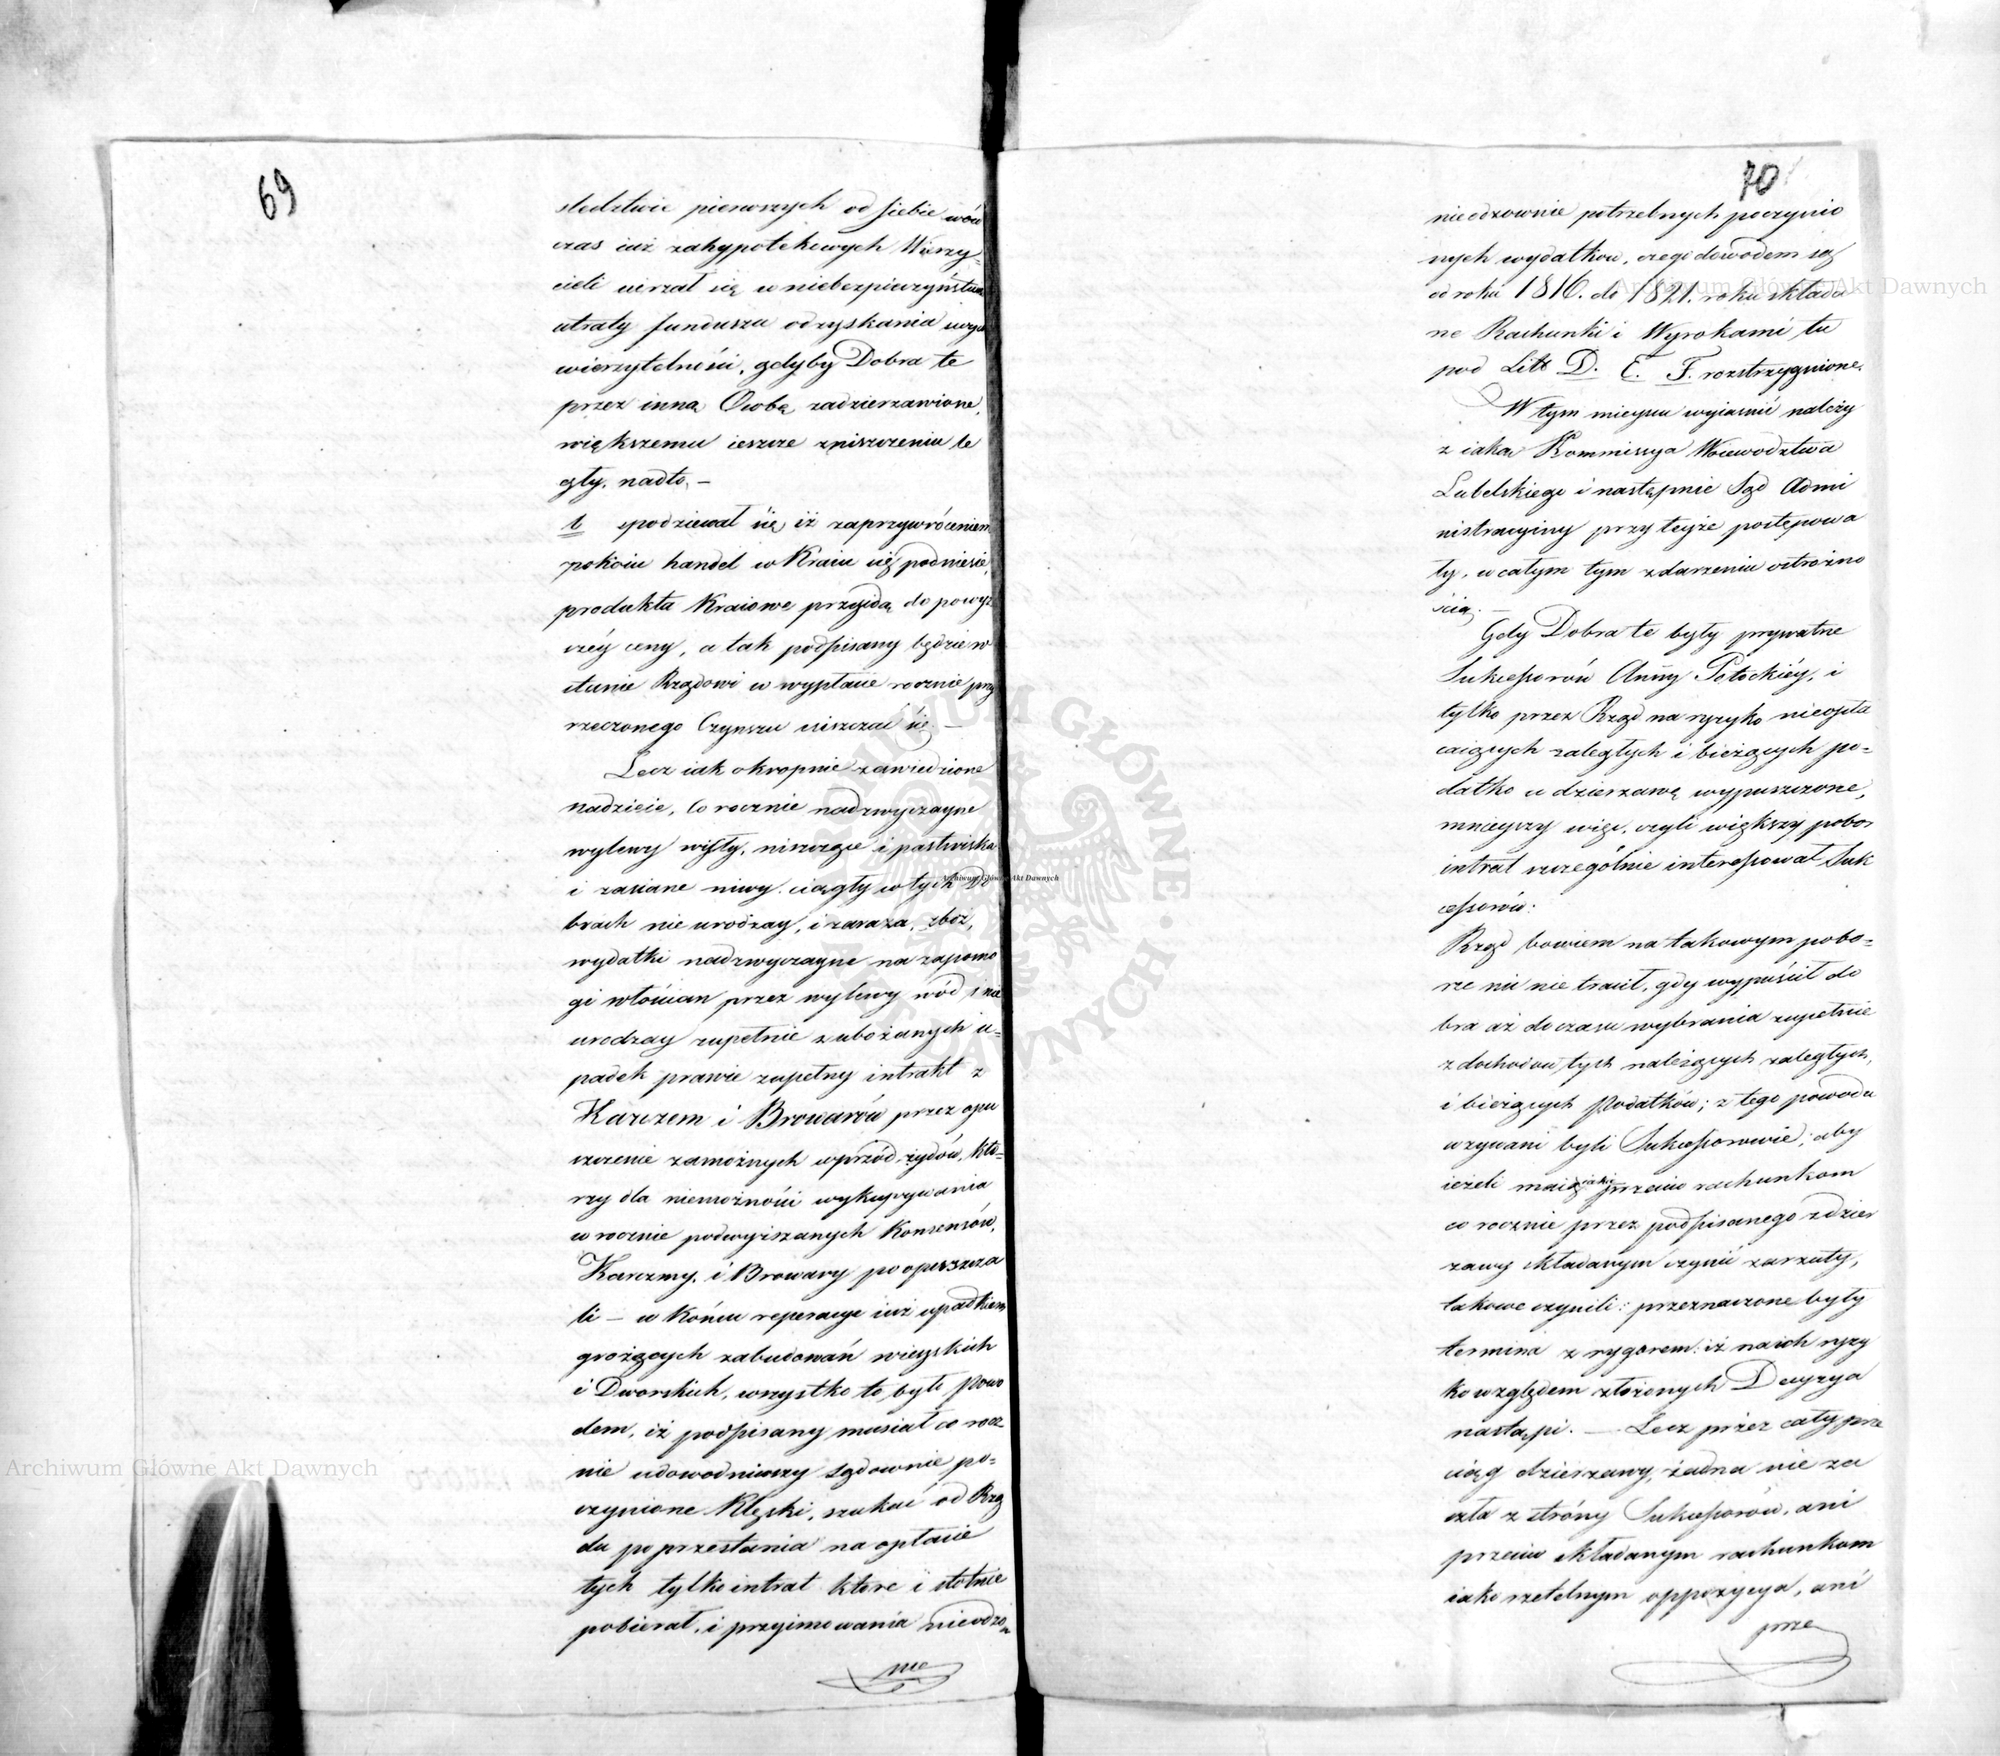 69
sledztwie pierwszych od siebie wów
czas iuż zahypotekowych Wierzy-
cieli uyrzał się w niebezpieczyństwie
utraty funduszu odzyskania swych
wierzytelności, gdyby Dobra te
przez inną Osobę zadzierzawione,
większemu ieszcze zniszczeniu le
gły. nadto. —
t spodziewał się iż zaprzywróceniem
pokoiu handel w Kraiu się podniesie,
produkta Kraiowe przyydą do powyż
széy ceny, a tak podpisany będzie w
stanie Rządowi w wypłacie rocznie przy
rzeczonego Czynszu uiszczać się —
Lecz iak okropnie zawiedzione
nadzieie, Co rocznie nadzwyczayne
wylewy wisły, niszczące i pastwiska
i zasiane niwy. ciągły w tych Do
brach nie urodzay, i zaraza, zbóż,
wydatki nadzwyczayne na zapomo
gi włościan przez wylewy wód i nie
urodzay zupełnie zubożanych u-
padek prawie zupełny intrakt z
Karczem i Browarów przez opu
szczenie zamożnych wprzód żydów, któ-
rzy dla niemożności wykupywania
w rocznie podwyższanych Konsensów,
Karczmy, i Browary po opuszcza
li — w Końcu reperacye iuż upadkiem
grożących zabudowań wieyskich
i Dworskich, wszystko to było Powo
dem, iż podpisany musiał co rocz
nie udowodniwszy Sądownie po-
czynione Klęski, szukać od Rzą
du poprzestania na opłacie
tych tylko intrat które istotnie
pobierał, i przyimowania nieodzo
wnie
70
nieodzownie potrzebnych poczynio
nych wydatków, czego dowodem są
od roku 1816. do 1821. roku składa
ne Rachunki i Wyrokami tu
pod Litt D. E. F. rozstrzygnione.
W tym mieyscu wyiaśnić należy
z iaką Kommissya Woiewodztwa
Lubelskiego i następnie Sąd Admi
nistracyiny przy teyże postępowa
ły, w całym tym zdarzeniu ostrożno
ścią. —
Gdy Dobra te były prywatne
Sukcessorów Anny Potockiéy, i
tylko przez Rząd na ryzyko nieopła
caiących zaległych i bieżących po-
datko w dzierzawę wypuszczone,
mnieyszy więc, czyli większy pobor
intrat szczególnie interessował Suk
cessorów:
Rząd bowiem na takowym pobo-
rze nic nie tracił, gdy wypuścił do
bra aż do czasu wybrania zupełnie
z dochodów tych należących zaległych,
i bieżących Podatków; z tego powodu
wzywani byli Sukcessorowie; aby
ieżeli maią iakie przeciw rachunkom
co rocznie przez podpisanego z dzier
zawy składanym czynić zarzuty,
takowe czynili: przeznaczone były
termina z rygorem: iż na ich ryzy
ko względem złożonych Decyzya
nastąpi. — Lecz przez cały prze
ciąg dzierzawy, żadna nie za
szła z stróny Sukcessorów, ani
przeciw składanym rachunkom
iako rzetelnym oppozycya, ani
prze